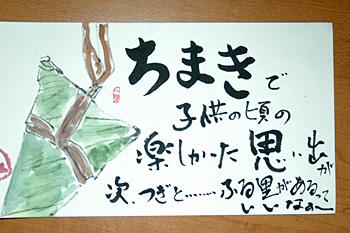 ちまきで
子供の頃の
楽しかった思い出が
次、つぎと……ふる里があるって
いいなぁ〜